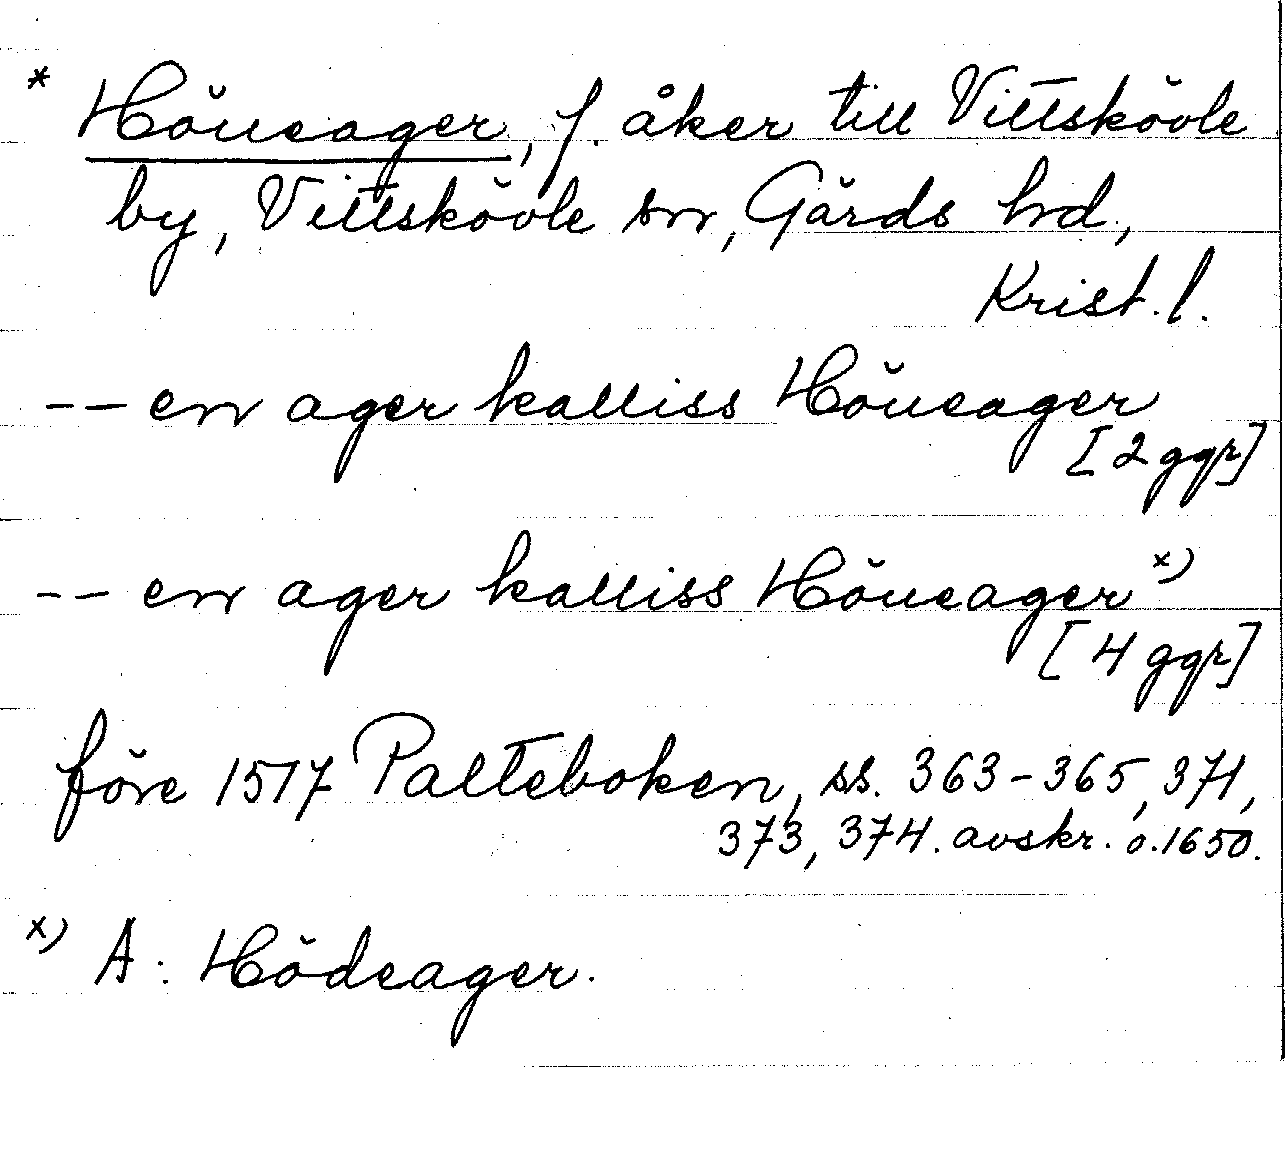 * Höueager, f. åker till Vittskövle
by, Vittskövle sn, Gärds hd,
Krist. l.
-- en ager kalliss Höueager
[2 ggr]
-- en ager kalliss Höueager x)
[4 ggr]
före 1517 Palteboken, ss. 363-365, 371,
373, 374. avskr. o. 1650.
x) A: Hödeager.